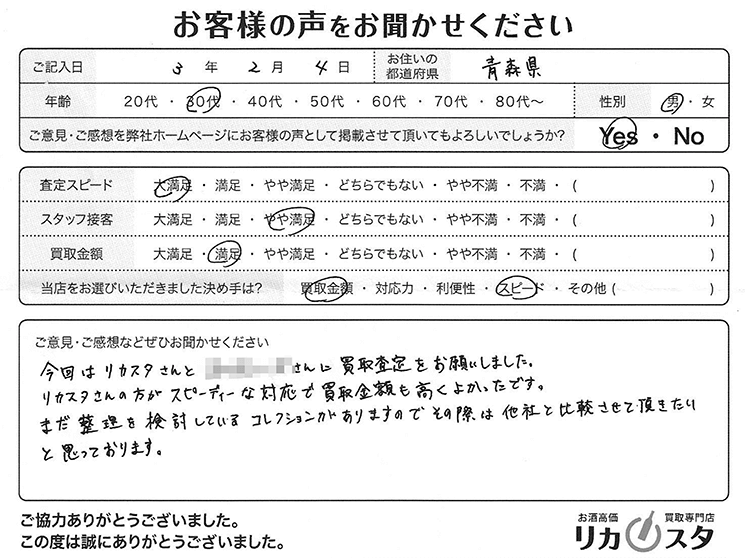 お客様の声をお聞かせください
ご記入日 3 年 2 月 4 日 お住いの都道府県 青森県
年齢 20代・30代・40代・50代・60代・70代・80代～ 性別 男・女
ご意見・ご感想を弊社ホームページにお客様の声として掲載させて頂いてもよろしいでしょうか? Yes・No
査定スピード 大満足・満足・やや満足・どちらでもない・やや不満・不満・( )
スタッフ接客 大満足・満足・やや満足・どちらでもない・やや不満・不満・( )
買取金額 大満足・満足・やや満足・どちらでもない・やや不満・不満・( )
当店をお選びいただきました決め手は? 買取金額・対応力・利便性・スピード・その他( )
ご意見・ご感想などぜひお聞かせください
今回はリカスタさんと さんに買取査定をお願いしました。
リカスタさんの方がスピーディーな対応で買取金額も高くよかったです。
まだ整理を検討しているコレクションがありますのでその際は他社と比較させて頂きたい
と思っております。
ご協力ありがとうございました。
この度は誠にありがとうございました。
お酒高価 買取専門店
リカスタ